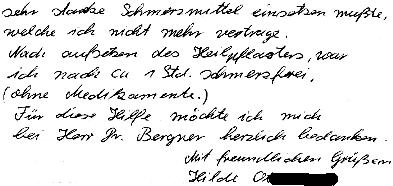 sehr starke Schmerzmittel einsetzen mußte,
welche ich nicht mehr vertrage.
Nach aufsetzen des Heilpflasters, war
ich nach ca 1 Std. schmerzfrei,
(ohne Medikamente.)
Für diese Hilfe möchte ich mich
bei Herr Dr. Bergner herzlich bedanken.
Mit freundlichen Grüßen
Hilde